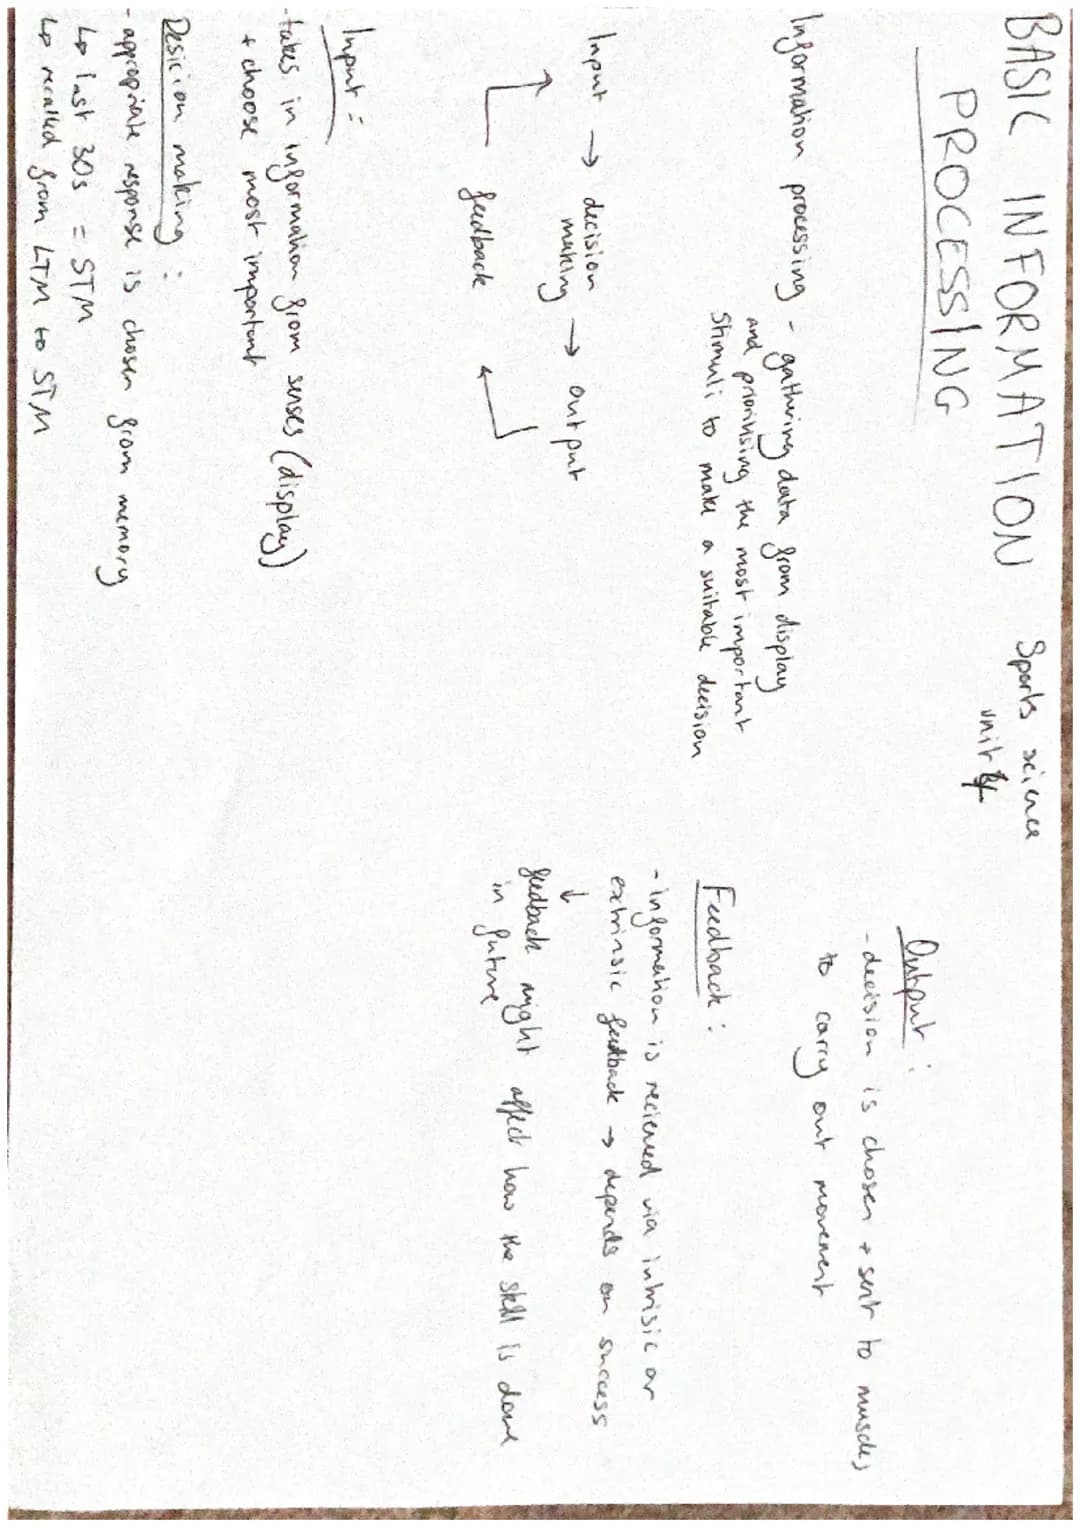 BASIC INFORMATION
PROCESSING
Sports science
unit
Information processing - gathering data from display
and prioritising the most important
stimuli to make a suitable decision
Input → decision making → output
feedback
Input:
- takes in information from senses (display)
+ choose most important
Desicion making:
- appropriate response is chosen from memory
↳ last 30s = STM
↳ recalled from LTM to STM
Output:
- decision is chosen + sent to muscles
to carry out movement
Feedback:
- information is recieved via intrisic or
extrinsic feedback → depends on success
↓
feedback might affect how the skill is done
in future